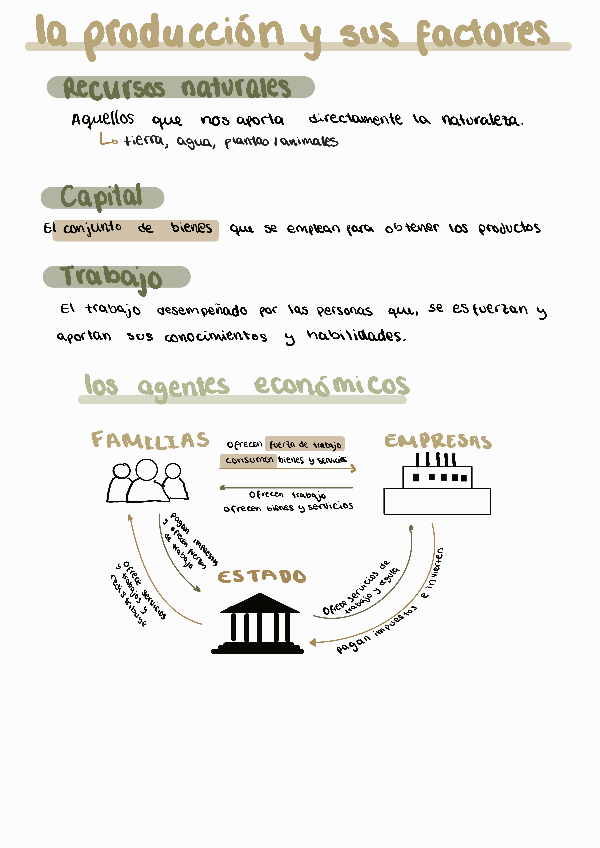 la producción y sus factores
Recursos naturales
Aquellos que nos aporta directamente la naturaleza.
↳ tierra, agua, plantas/animales
Capital
El conjunto de bienes que se emplean para obtener los productos
Trabajo
El trabajo desempeñado por las personas que, se esfuerzan y
aportan sus conocimientos y habilidades.
los agentes económicos
FAMILIAS
Ofrecen fuerza de trabajo
consumen bienes y servicios
EMPRESAS
Ofrecen trabajo
ofrecen bienes y servicios
pagan impuestos
y ofrecen fuerza
de trabajo
ESTADO
Ofrece servicios
y trabajos y
redistribuye
Ofrece servicios de
trabajo y ayuda
pagan impuestos e invierten